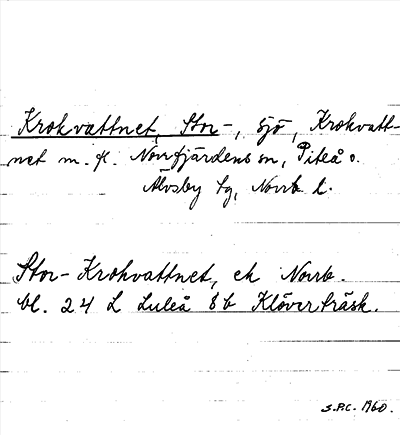 Krokvattnet, Stor-, sjö, Krokvatt-
net m. fl. Norrfjärdens sn, Piteå o.
Älvsby tg, Norrb l.
Stor-Krokvattnet, ek Norrb.
bl. 24 L Luleå 8b Klöverträsk.
S.P.C. 1960.